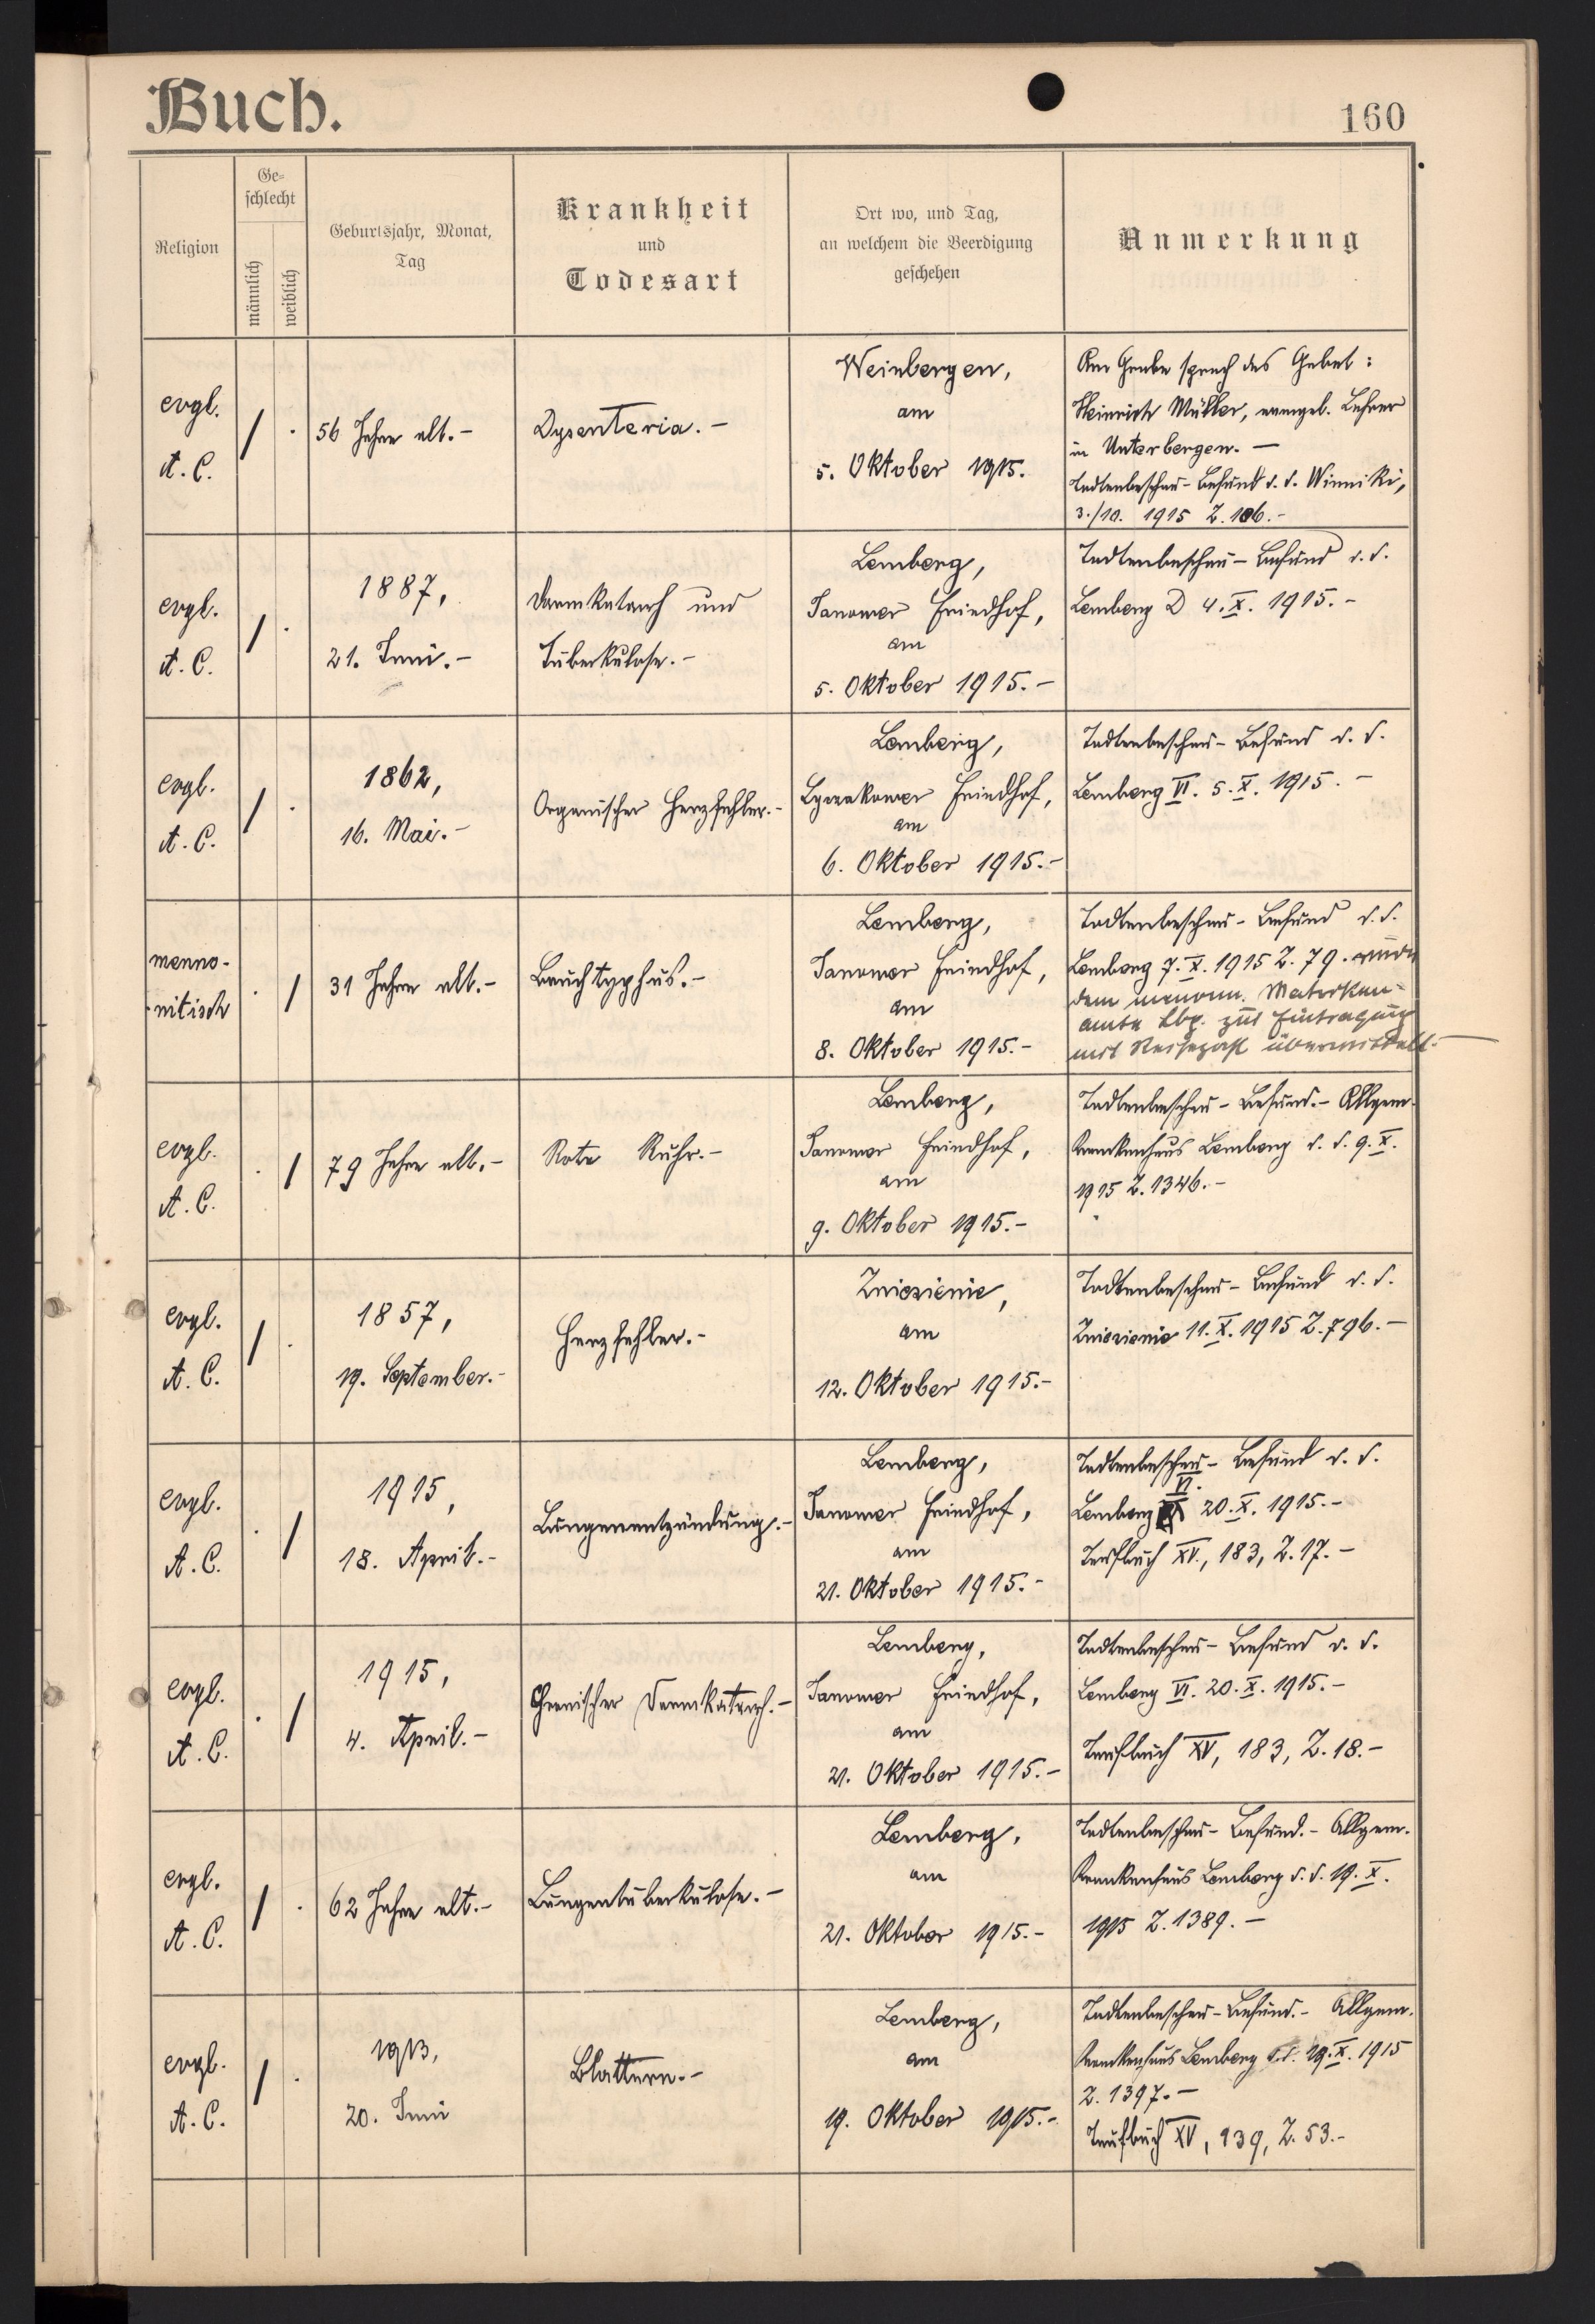 Buch.
160
Religion
Ge=
schlecht
männlich
weiblich
Geburtsjahr, Monat,
Tag
Krankheit
und
Todesart
Ort wo, und Tag,
an welchem die Beerdigung
geschehen
Anmerkung
evgl.
A. C.
/ .
56 Jahre alt.-
Dysenteria.-
Weinbergen,
am
5. Oktober 1915.
Am Grabe sprach das Gebet:
Heinrich Müller, evangel. Lehrer
in Unterbergen.-
Todtenbeschau-Befund d. d. Winniki,
3./10. 1915 Z. 106.-
evgl.
A. C.
/ .
1887,
21. Juni.-
Darmkatarrh und
Tuberkulose.-
Lemberg,
Janower Friedhof,
am
5. Oktober 1915.-
Todtenbeschau-Befund d. d.
Lemberg D 4. X. 1915.-
evgl.
A. C.
/ .
1862,
16. Mai.-
Organischer Herzfehler.-
Lemberg,
Lyczakower Friedhof,
am
6. Oktober 1915.-
Todtenbeschau-Befund d. d.
Lemberg VI. 5. X. 1915.-
menno-
-nitisch
. /
31 Jahre alt.-
Bauchtyphus.-
Lemberg,
Janower Friedhof,
am
8. Oktober 1915.-
Todtenbeschau-Befund d. d.
Lemberg 7. X. 1915 Z. 79. wurde
dem mennon. Matriken-
amte Lbg. zur Eintragung
mit übermittelt.-
evgl.
A. C.
. /
79 Jahre alt.-
Rote Ruhr.-
Lemberg,
Janower Friedhof,
am
9. Oktober 1915.-
Todtenbeschau-Befund.- Allgem.
Krankenhaus Lemberg d. d. 9. X.
1915 Z. 1346.-
evgl.
A. C.
/ .
1857,
19. September.-
Herzfehler.-
Zniesienie,
am
12. Oktober 1915.-
Todtenbeschau-Befund d. d.
Zniesienie 11. X. 1915 Z. 796.-
evgl.
A. C.
. /
1915,
18. April.-
Lungenentzündung.-
Lemberg,
Janower Friedhof,
am
21. Oktober 1915.-
Todtenbeschau-Befund d. d.
VI.
Lemberg 20. X. 1915.-
Taufbuch XV., 183, Z. 17.-
evgl.
A. C.
. /
1915,
4. April.-
Chronischer Darmkatarrh.-
Lemberg,
Janower Friedhof,
am
21. Oktober 1915.-
Todtenbeschau-Befund d. d.
Lemberg VI. 20. X. 1915.-
Taufbuch XV, 183, Z. 18.-
evgl.
A. C.
/ .
62 Jahre alt.-
Lungentuberkulose.-
Lemberg,
am
21. Oktober 1915.-
Todtenbeschau-Befund.- Allgem.
Krankenhaus Lemberg d. d. 19. X.
1915 Z. 1389.-
evgl.
A. C.
/ .
1913,
20. Juni
Blattern.-
Lemberg,
am
19. Oktober 1915.-
Todtenbeschau-Befund.- Allgem.
Krankenhaus Lemberg d. d. 19. X. 1915
Z. 1397.-
Taufbuch XV, 139, Z. 53.-